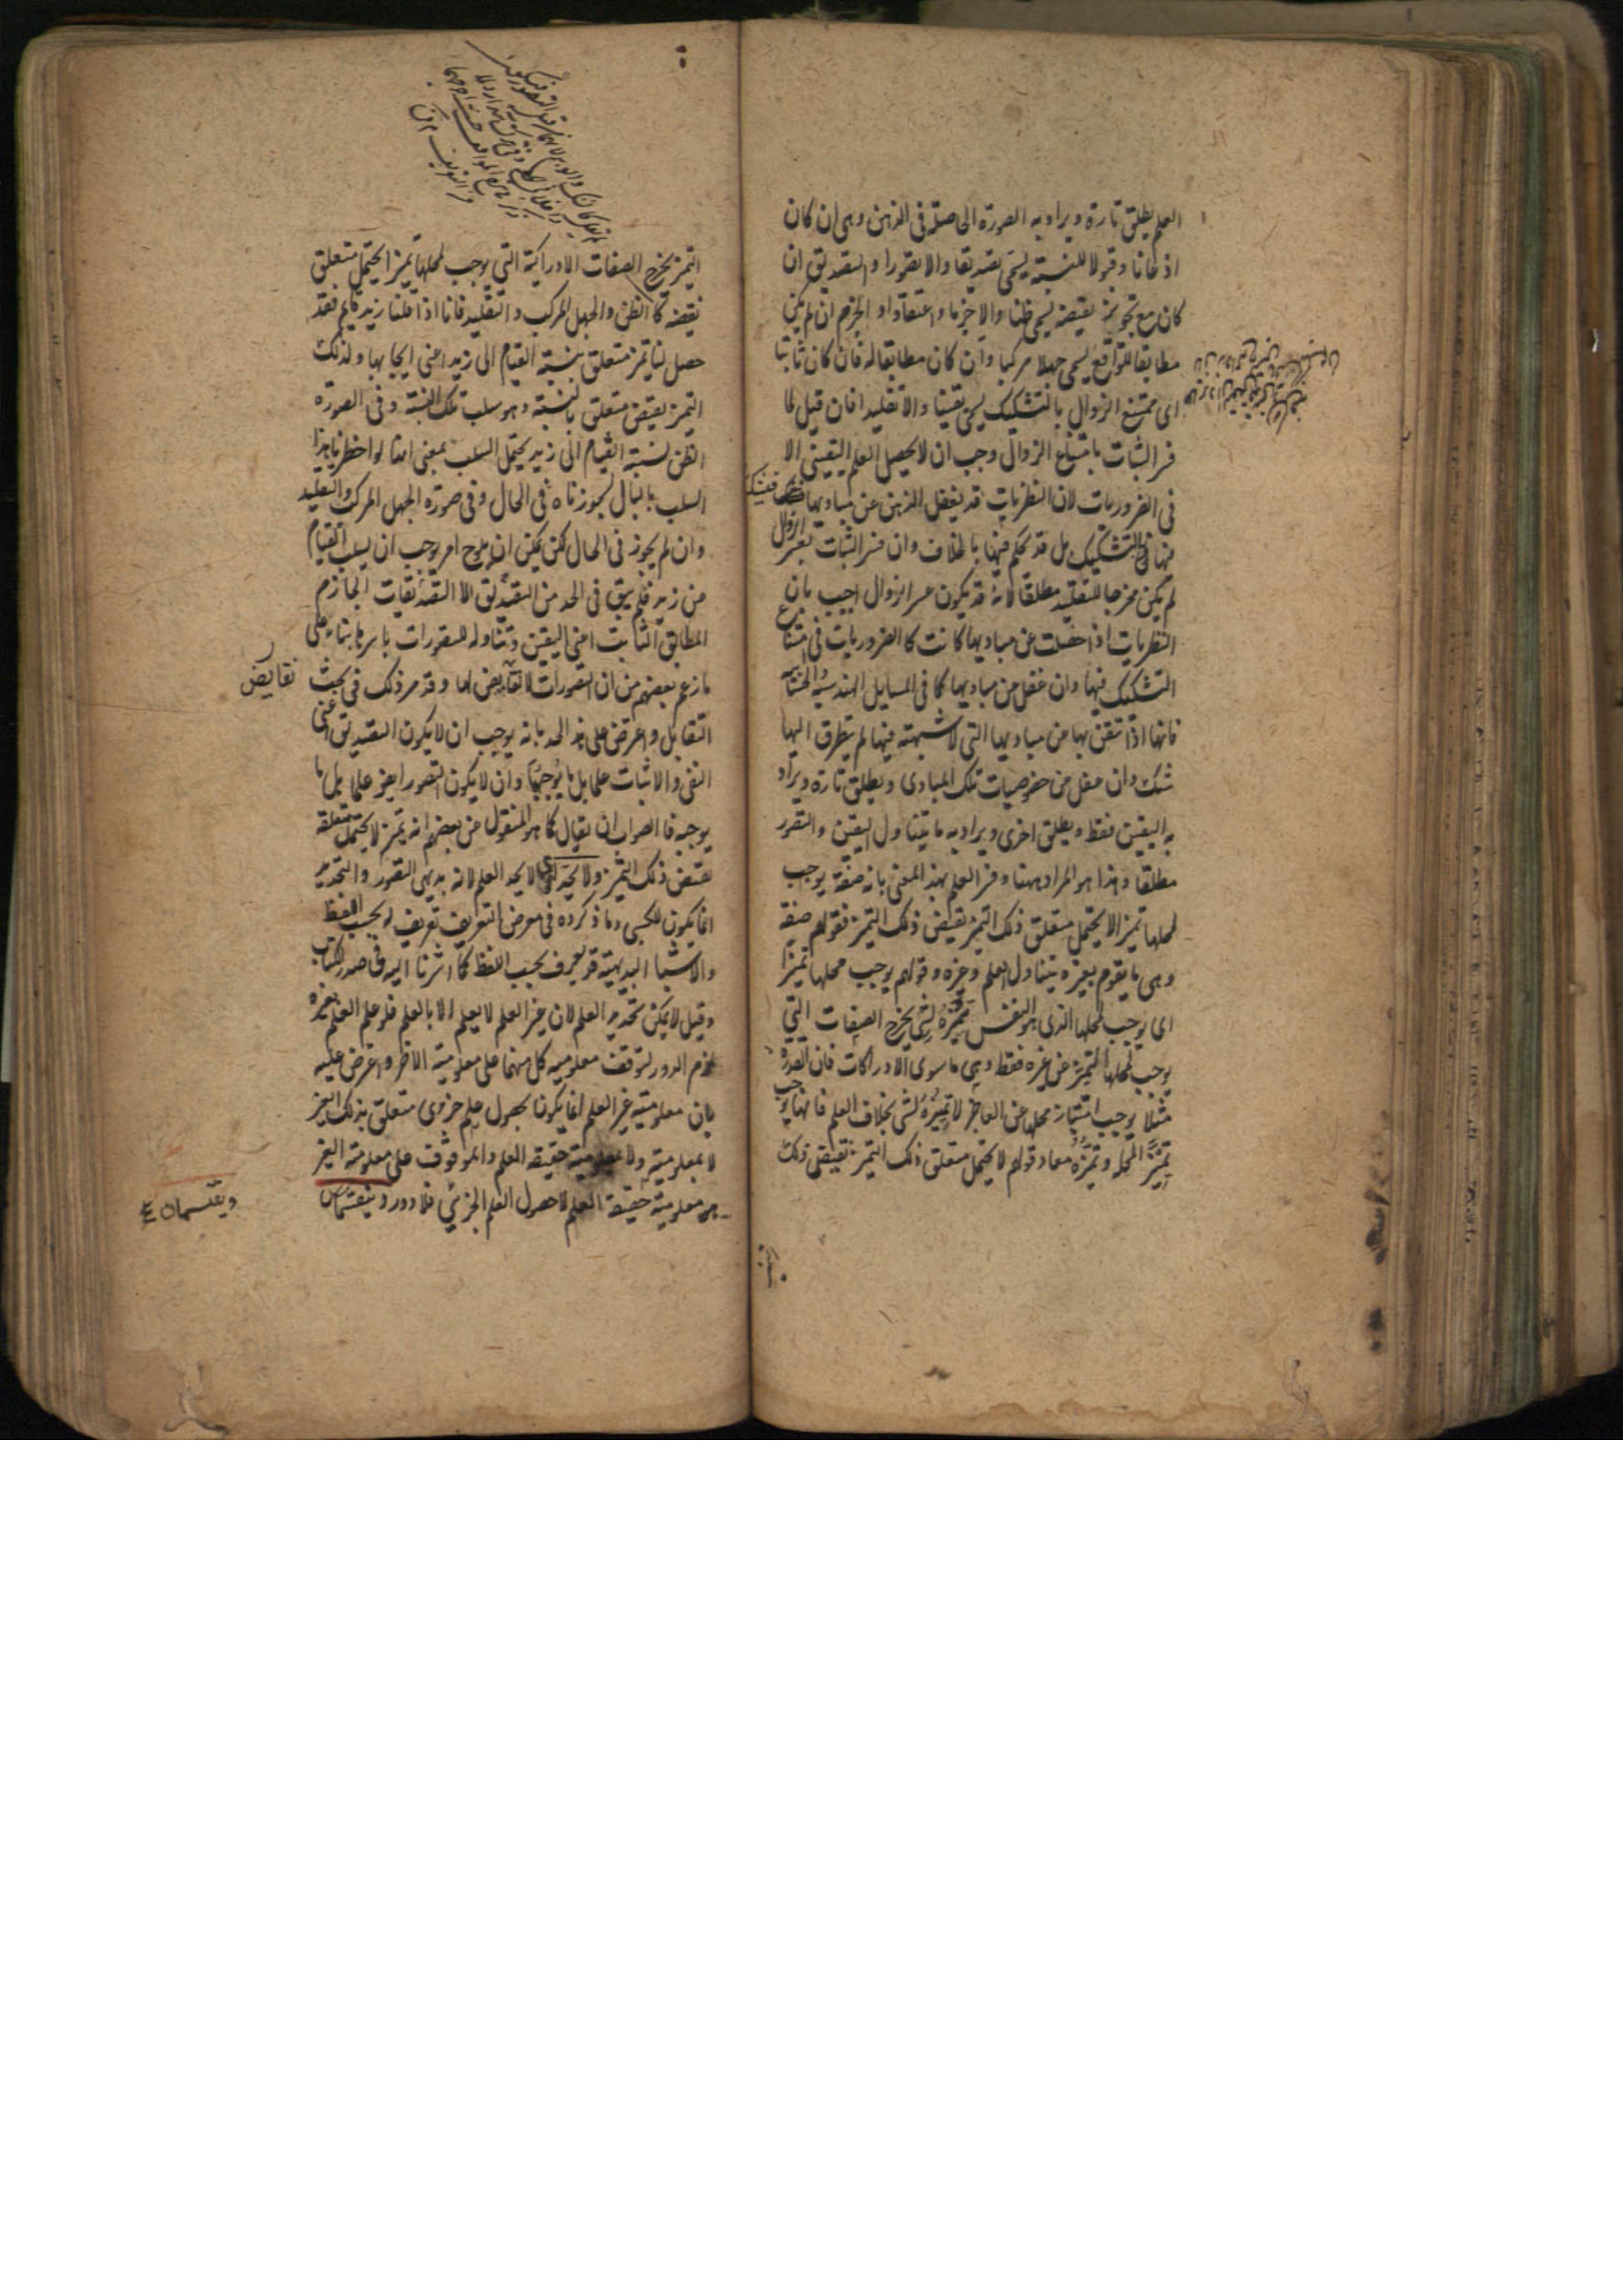 العلم يطلق تارة ويراد به الصورة الحاصلة فى الذهن وهى ان كان
اذعانا وقبولا للنسبة يسمى تصديقا والا تصورا والتصديق ان
كان مع تجويز نقيضه يسمى ظنا والا جزما واعتقادا والجزم ان لم يكن
مطابقا للواقع يسمى جهلا مركبا وان كان مطابقا له فان كان ثابتا
اى ممتنع الزوال بالتشكيك يسمى يقينا والا تقليدا فان قيل لما
فسر الثبات بامتناع الزوال وجب ان لا يحصل العلم اليقينى الا
فى الضروريات لان النظريات قد يغفل الذهن عن مباديها فيشكك
فيها بل قد يحكم فيها بالخلاف وان فسر الثبات بعسر الزوال
لم يكن مخرجا للتقليد مطلقا لانه قد يكون عسر الزوال اجيب بان
النظريات اذا حصلت عن مباديها كانت كالضروريات فى امتناع
التشكيك فيها وان غفل عن مباديها كما فى المسايل الهندسية والحسابية
فانها اذا تيقن بها من مباديها التى لا شبهة فيها لم يتطرق اليها
شك وان غفل عن خصوصيات تلك المبادى ويطلق تارة ويراد
به اليقين فقط ويطلق اخرى ويراد به ما يتناول اليقين والتصور
مطلقا وهذا هو المراد ههنا وفسر العلم بهذا المعنى بانه صفة يوجب
لمحلها تميزا لا يحتمل متعلق ذلك التميز نقيض ذلك التميز فقولهم صفة
وهى ما يقوم بغيره يتناول العلم وغيره وقولهم يوجب محلها تميزا
اى يوجب لمحلها الذى هو النفس تميزه لشئ يخرج الصفات التى
يوجب لمحلها التميز عن غيره فقط وهى ما سوى الادراكات فان القدرة
مثلا يوجب امتياز محلها عن العاجز لا تميزه لشئ بخلاف العلم فانها يوجب
تميز المحل وتميزه معا وقولهم لا يحتمل متعلق ذلك التميز نقيض ذلك
التميز يخرج الصفات الادراكية التى يوجب لمحلها تميزا يحتمل متعلق
نقيضه كالظن والجهل المركب والتقليد فانا اذا قلنا زيد قايم فقد
حصل لنا تميز متعلق بنسبة القيام الى زيد اعنى ايجابها ولذلك
التميز نقيض متعلق بالنسبة وهو سلب تلك النسبة وفى الصورة
الظن نسبة القيام الى زيد يحتمل السلب بمعنى اننا لو اخطرنا هذا
السلب بالبال لجوزناه فى الحال وفى صورة الجهل المركب والتقليد
وان لم يجوز فى الحال لكن يمكن ان يلوح امر يوجب ان يسلب القيام
من زيد فلم يبق فى الحد من التصديق الا التصديقات الجازم
المطابق الثابت اعنى اليقين وتناوله للتصورات باسرها بناء على
ما زعم بعضهم من ان التصورات لا نقايض لها وقد مر ذلك فى بحث
نقايض
التقابل واعترض على هذا الحد بانه يوجب ان لا يكون التصديق اعنى
النفى والاثبات علما بل ما يوجبهما وان لا يكون التصور ايضا علما بل ما
يوجبه فالصواب ان يقال كما هو المنقول عن بعضهم انه تميز لا يحتمل متعلقه
نقيض ذلك التميز ولا يحد اى لا يحد العلم لانه بديهى التصور والتحديد
انما يكون للكسبى وما ذكروه فى معرض التعريف تعريف له بحسب اللفظ
والاشيا البديهية قد يعرف بحسب اللفظ كما اشرنا اليه فى صدر الكتاب
وقيل لا يمكن تحديد العلم لان غير العلم لا يعلم الا بالعلم فلو علم العلم بغيره
لزم الدور لتوقف معلومية كل منهما على معلومية الاخر واعترض عليه
بان معلومية غير العلم انما يكون بحصول علم جزوى متعلق بذلك الغير
لا بمعلوميته ولا بمعلومية حقيقة العلم والموقوف على معلومية الغير
هو معلومية حقيقة العلم لا حصول العلم الجزئى فلا دور وينقسمان
ويقسمان